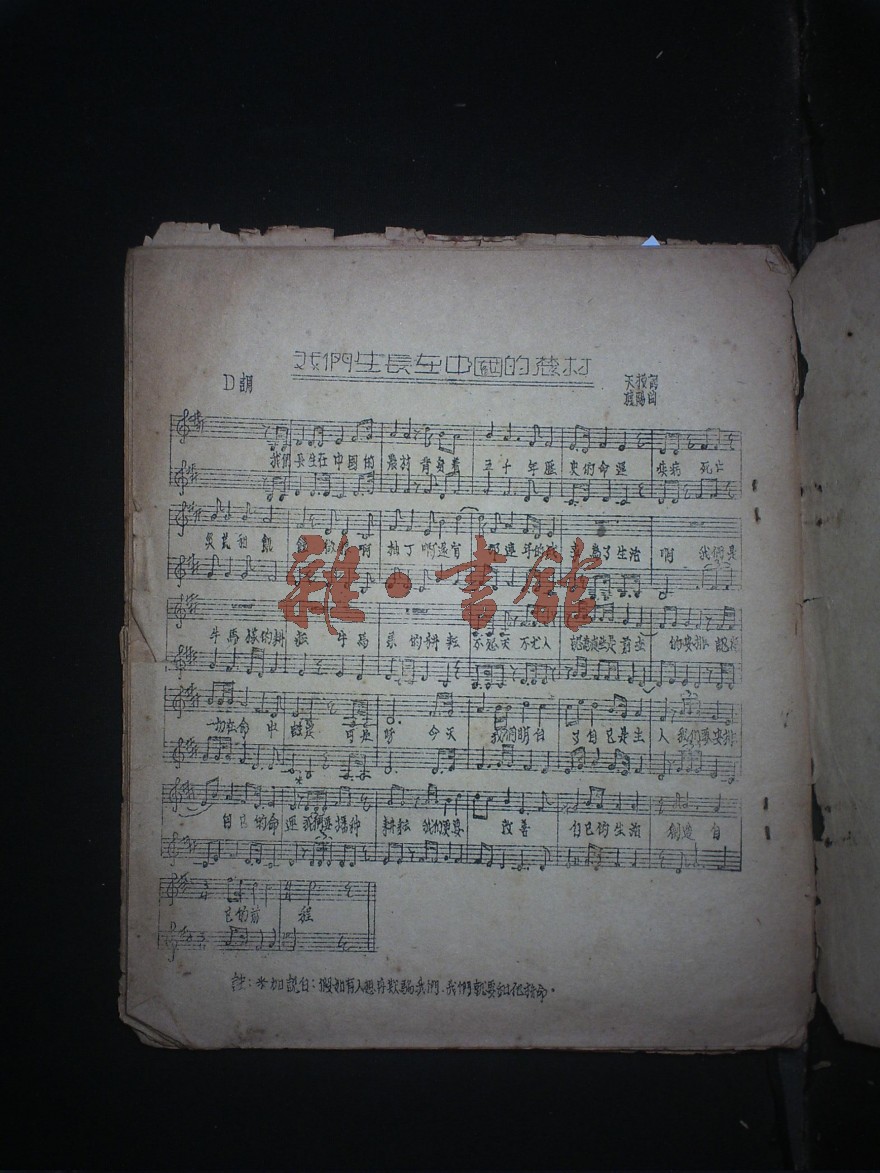 我們生長在中國的農村
D調
天授詞
我們長生在中國的農村 背負着 五十年歷史的命運 疾病 死亡
災荒和飢餓 啊 抽丁啊還有 為了生活 啊 我們是
牛馬樣的耕耘 牛馬樣的耕耘 不怨天 不尤人 前生 的安排
一切在命中 可是呀 今天 我們明白 了自己是主人 我們要安排
自己的命運 我們要播種 耕耘 我們更要 改善 自己的生活 創造自
己的前程
雜·書館
註：*加說白：假如有人想再欺騙我們，我們就要和他拚命。